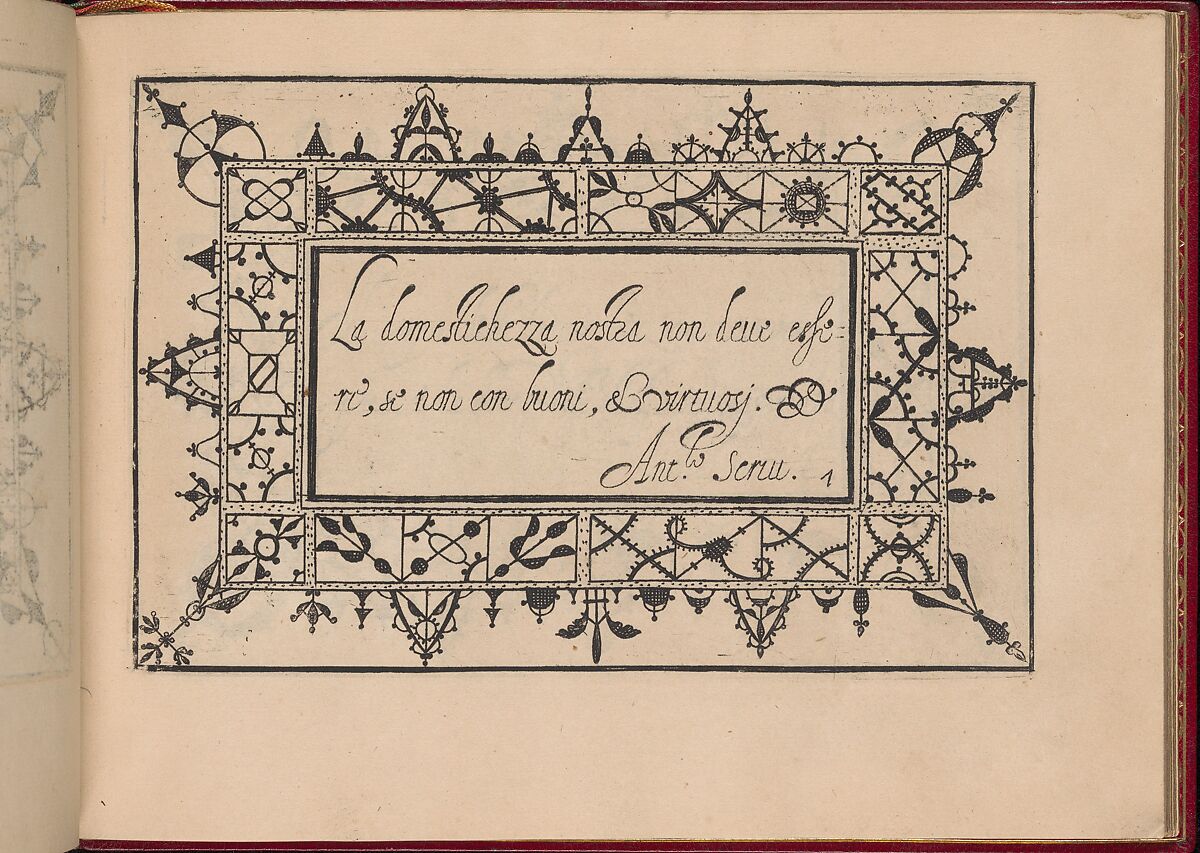 La domestichezza nostra non deue esse=
re, se non con buoni, & virtuosj.
Ant.º Scriu. 1